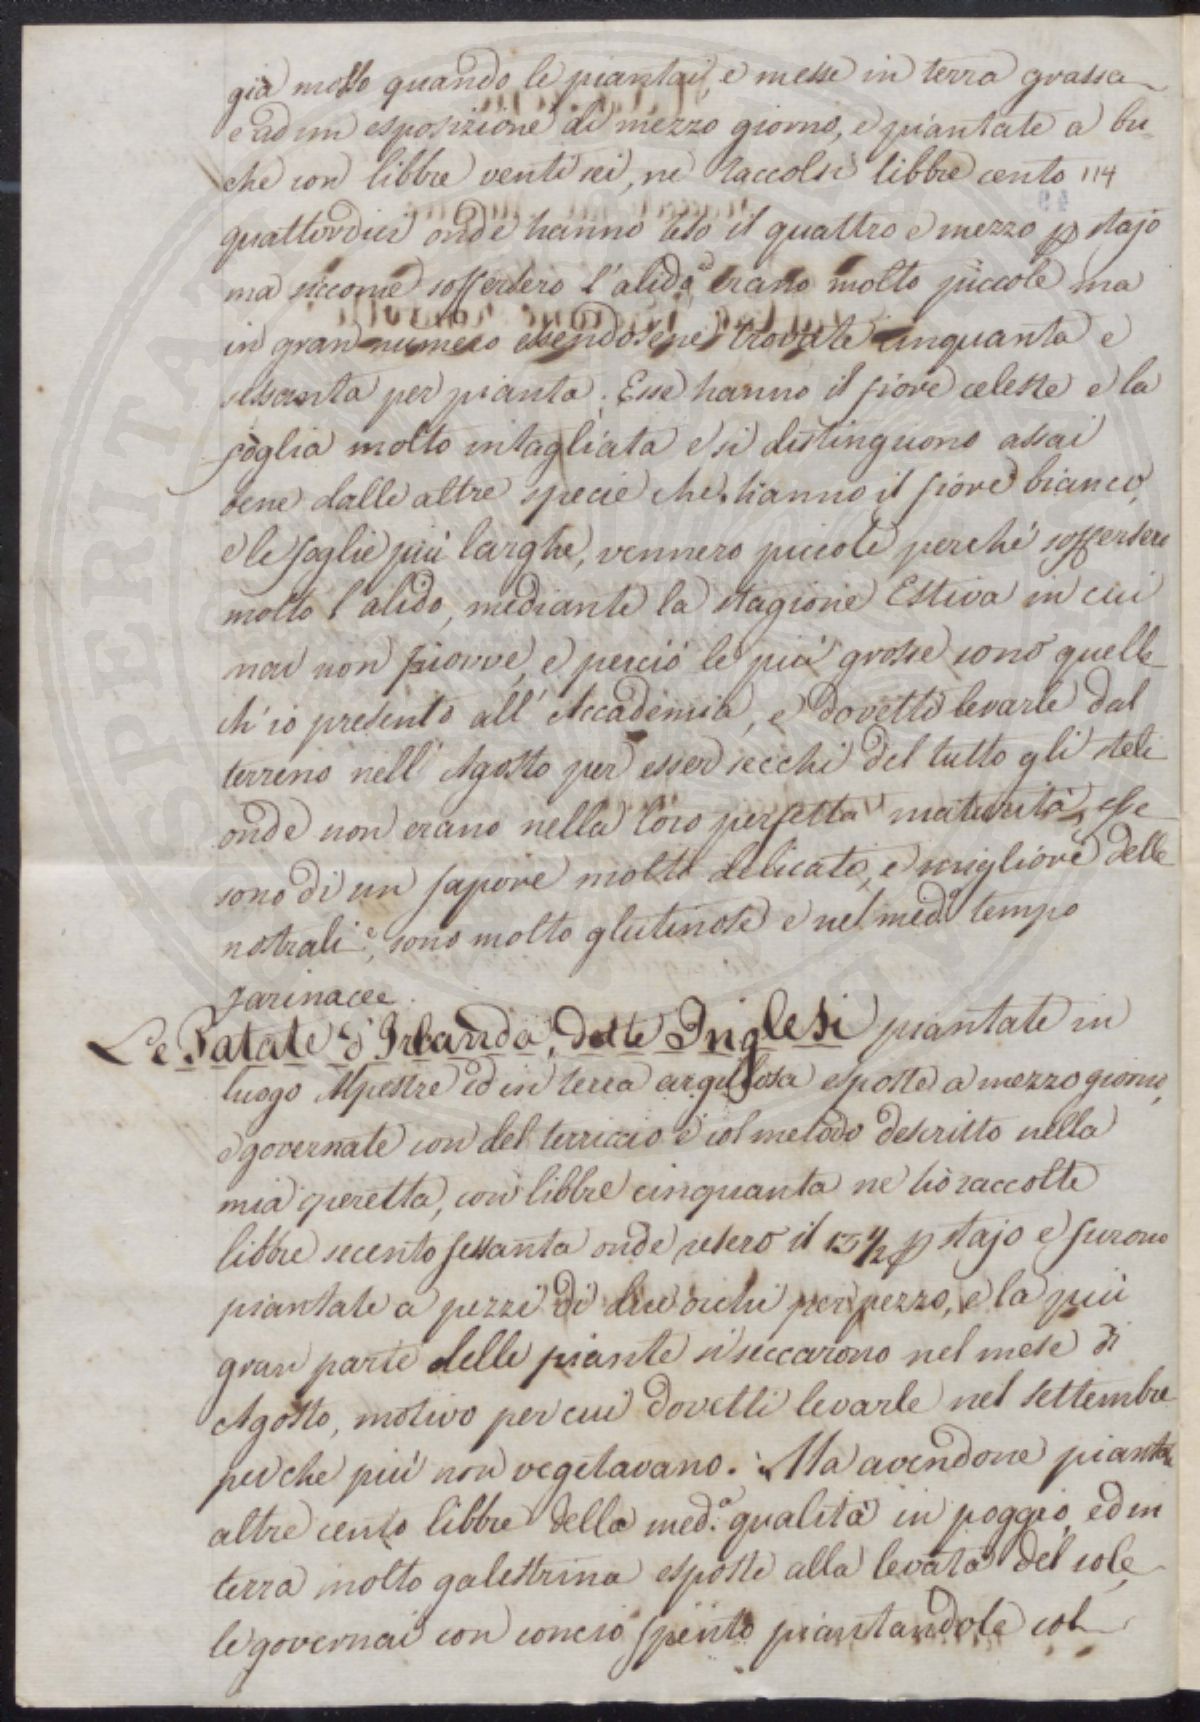 già mosso quando le piantai, e messe in terra grassa
e ad un esposizione di mezzo giorno, e piantate a bu-
che con libbre venti sei, ne raccolsi libbre cento 114
quattordici onde hanno reso il quattro e mezzo p stajo
ma siccome soffersero l'alido erano molto piccole ma
in gran numero essendosene trovate cinquanta e
sessanta per pianta. Esse hanno il fiore celeste e la
foglia molto intagliata e si distinguono assai
bene dalle altre specie che hanno il fiore bianco,
e le foglie più larghe, vennero piccole perchè soffersero
molto l'alido, mediante la stagione Estiva in cui
mai non piovve, e perciò le più grosse sono quelle
ch'io presento all'Accademia, e dovetti levarle dal
terreno nell'Agosto per esser secchi del tutto gli steli
onde non erano nella loro perfetta maturità, esse
sono di un sapore molto delicato, e migliore delle
nostrali, sono molto glutinose e nel med.o tempo
farinacee.
Le Patate d'Irlanda, dette Inglesi piantate in
luogo Alpestre ed in terra argillosa esposte a mezzo giorno,
e governate con del terriccio e col metodo descritto nella
mia operetta, con libbre cinquanta ne hò raccolte
libbre secento sessanta onde resero il 13 1/2 p stajo e furono
piantate a pezzi di due occhi per pezzo, e la più
gran parte delle piante si seccarono nel mese di
Agosto, motivo per cui dovetti levarle nel settembre
perche più non vegetavano. Ma avendone piantate
altre cento libbre della med.a qualità in poggio, ed in
terra molto galestrina esposte alla levata del sole,
le governai con concio spento piantandole col